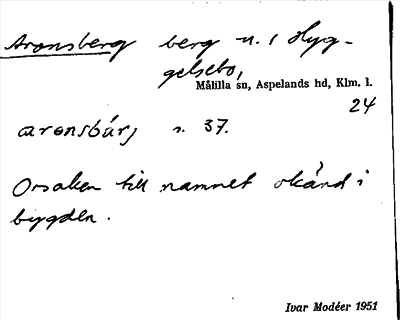 Aronsberg berg n. i Hyg-
gelsebo,
Målilla sn, Aspelands hd, Klm. l.
24
aronsbärj s. 37.
Orsaken till namnet okänd i
bygden.
Ivar Modéer 1951